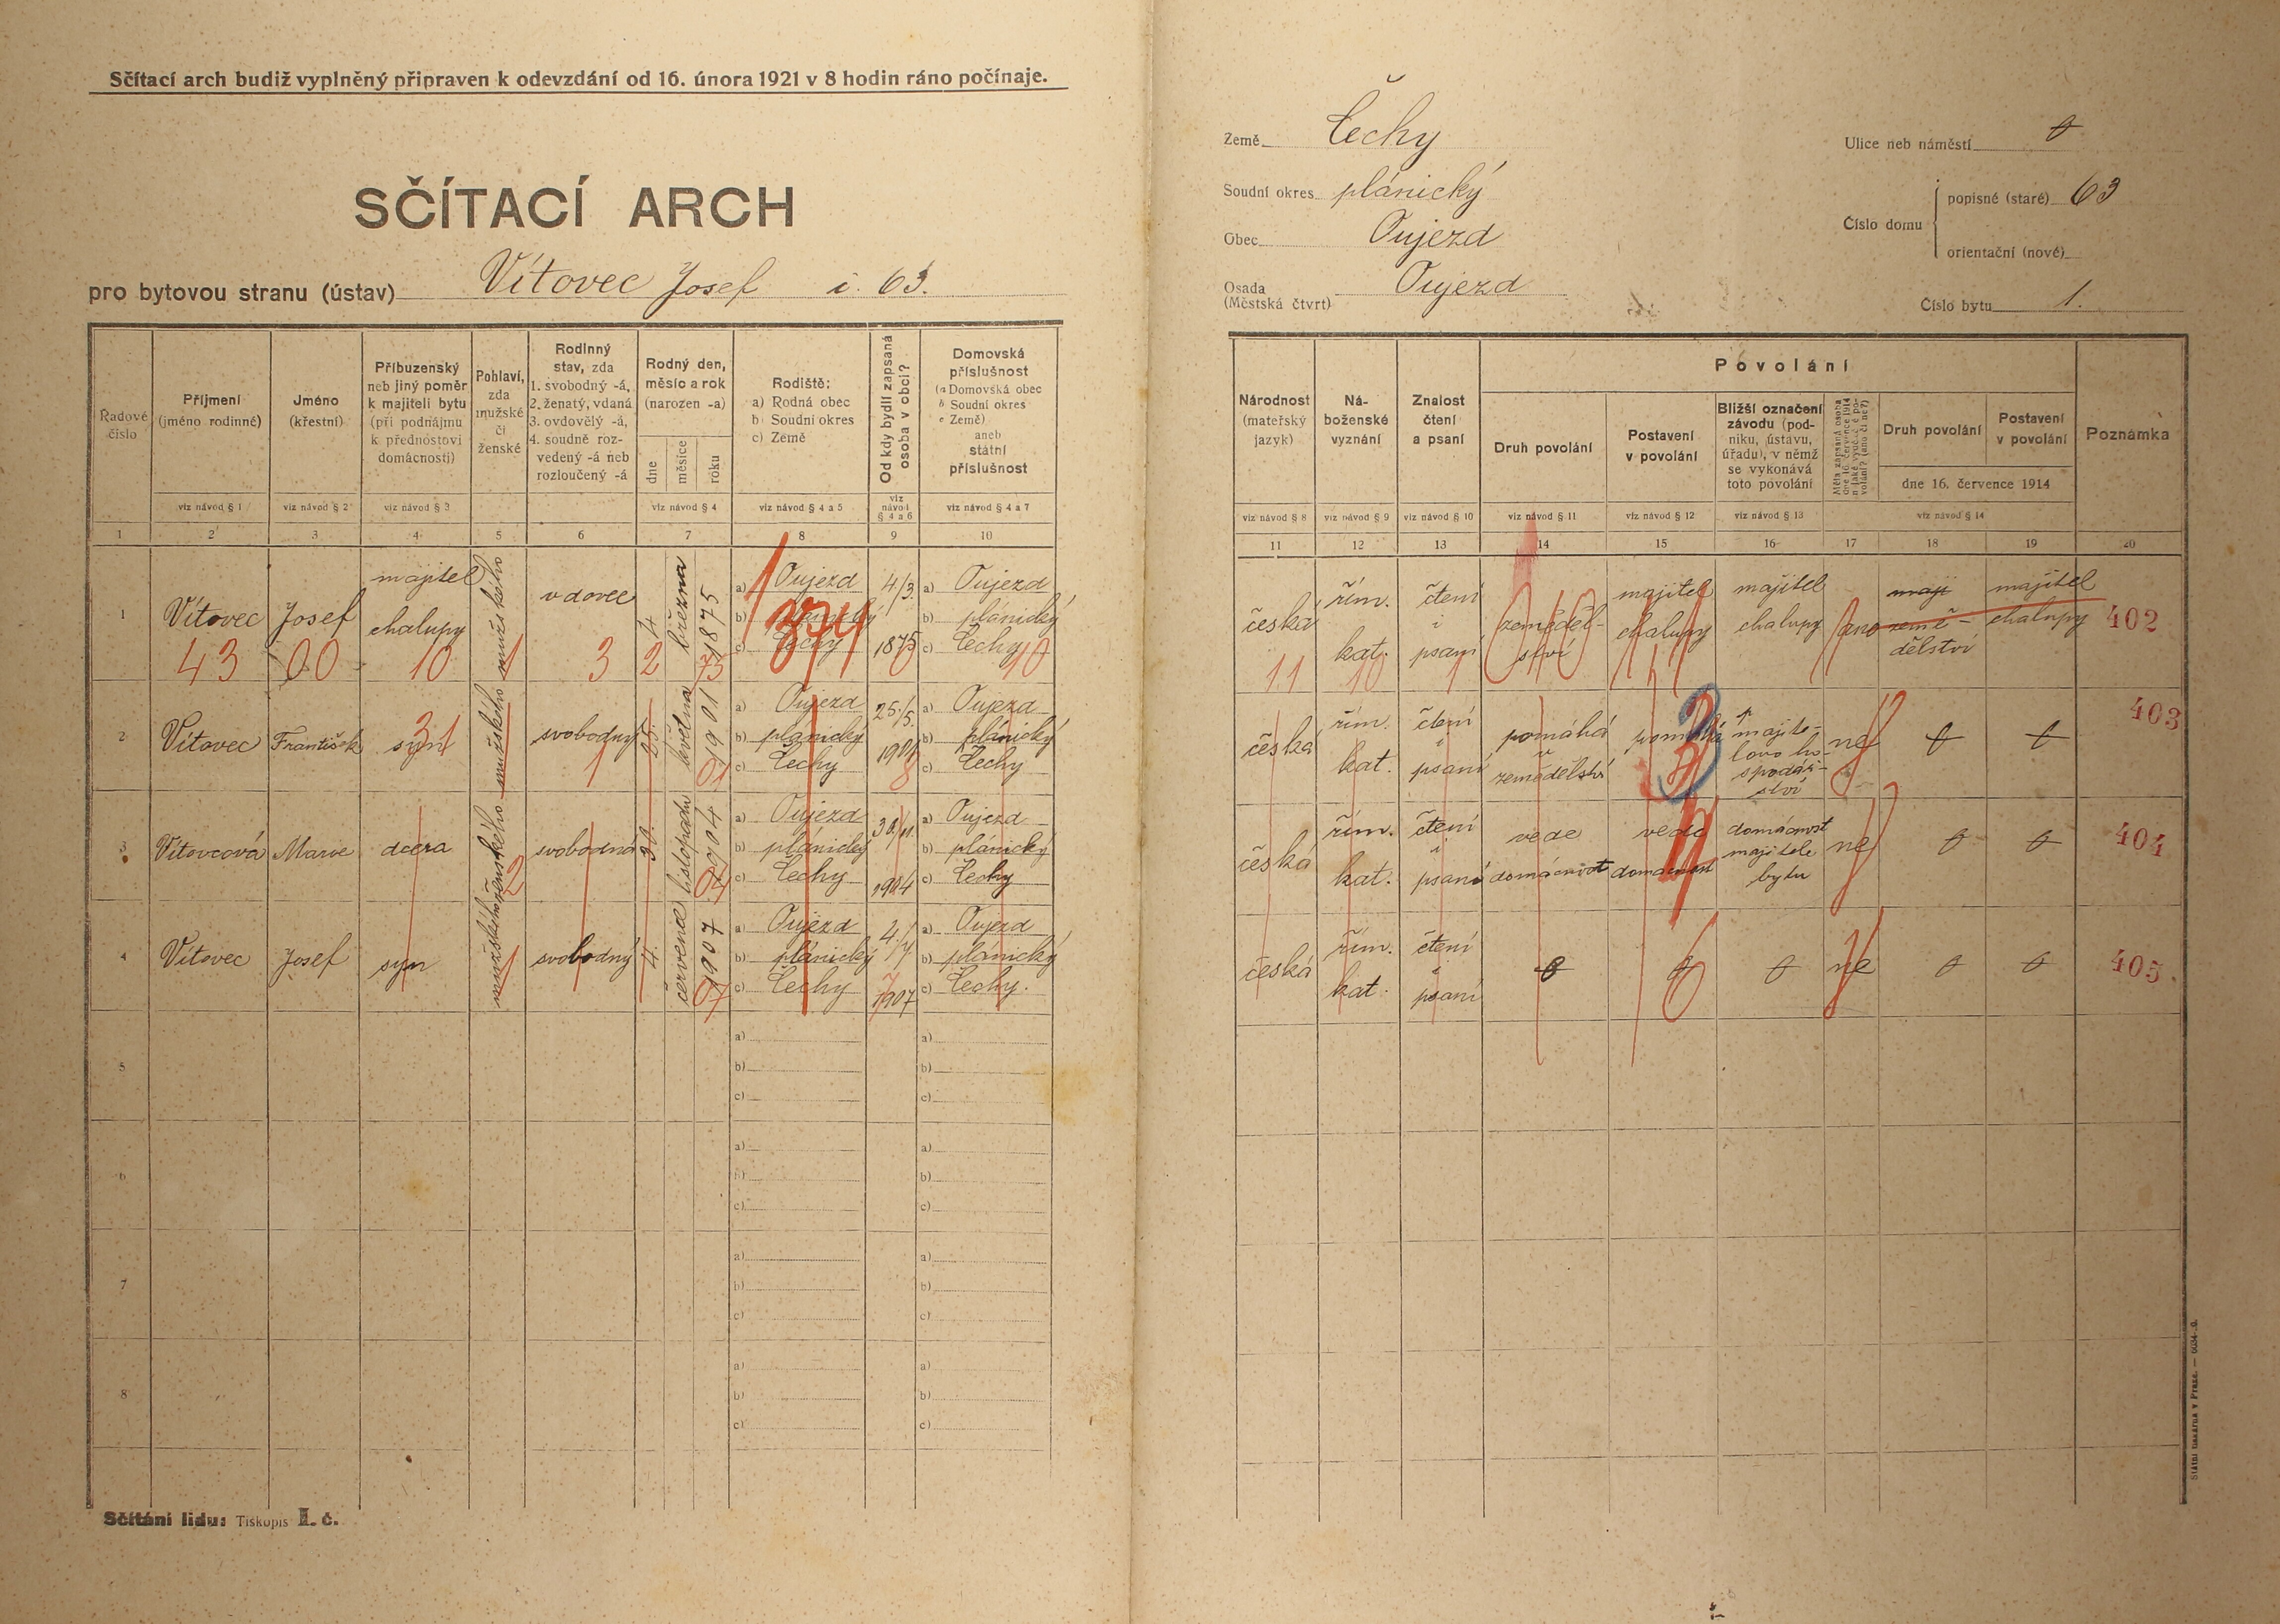 Sčítací arch budiž vyplněný připraven k odevzdání od 16. února 1921 v 8 hodin ráno počínaje.
SČÍTACÍ ARCH
pro bytovou stranu (ústav) Vítovec Josef č. 63.
Země Čechy
Soudní okres plánický
Obec Oujezd
Osada Oujezd
(Městská čtvrt)
Ulice neb náměstí 0
Číslo domu
popisné (staré) 63
orientační (nové)
Číslo bytu 1.
Řadové číslo
Příjmení
(jméno rodinné)
viz návod § 1
Jméno
(křestní)
viz návod § 2
Příbuzenský
neb jiný poměr
k majiteli bytu
(při podnájmu
k přednostovi
domácnosti)
viz návod § 3
Pohlaví,
zda
mužské
či
ženské
Rodinný
stav, zda
1. svobodný -á,
2. ženatý, vdaná
3. ovdovělý -á,
4. soudně roz-
vedený -á neb
rozloučený -á
Rodný den,
měsíc a rok
(narozen -a)
dne
měsíce
roku
viz návod § 4
Rodiště:
a) Rodná obec
b) Soudní okres
c) Země
viz návod § 4 a 5
Od kdy bydlí zapsaná
osoba v obci?
viz
návod
§ 4 a 6
Domovská
příslušnost
(a Domovská obec
b Soudní okres
c Země)
aneb
státní
příslušnost
viz návod § 4 a 7
1 2 3 4 5 6 7 8 9 10
Národnost
(mateřský
jazyk)
viz návod § 8
Ná-
boženské
vyznání
viz návod § 9
Znalost
čtení
a psaní
viz návod § 10
Povolání
Druh povolání
viz návod § 11
Postavení
v povolání
viz návod § 12
Bližší označení
závodu (pod-
niku, ústavu,
úřadu), v němž
se vykonává
toto povolání
viz návod § 13
Měla zapsaná osoba
dne 16. července 1914
nějaké výdělečné po-
volání? (ano či ne?)
Druh povolání
Postavení
v povolání
dne 16. července 1914
viz návod § 14
Poznámka
11 12 13 14 15 16 17 18 19 20
1 Vítovec Josef majitel chalupy mužského vdovec 4 března 1875
a) Oujezd
b) plánický
c) Čechy
4/3. 1875
a) Oujezd
b) plánický
c) Čechy
43 00 10 1 3 2 75 10
česká řím. kat. čtení i psaní zeměděl- ství majitel chalupy majitel chalupy ano maji země- dělství majitel chalupy 402
11 10 1
2 Vítovec František syn mužského svobodný 25. května 1901
a) Oujezd
b) plánický
c) Čechy
25./5. 1901
a) Oujezd
b) plánický
c) Čechy
31 1 01 8
česká řím. kat. čtení i psaní pomáhá v zemědělství pomáhá v majite- lovo ho- spodář- ství ne 0 0 403
3 Vítovcová Marie dcera ženského svobodná 30. listopadu 1904
a) Oujezd
b) plánický
c) Čechy
30/11. 1904
a) Oujezd
b) plánický
c) Čechy
2 04
česká řím. kat. čtení i psaní vede domácnost vede domácnost domácnost majitele bytu ne 0 0 404
4 Vítovec Josef syn mužského svobodný 4. července 1907
a) Oujezd
b) plánický
c) Čechy
4/7 1907
a) Oujezd
b) plánický
c) Čechy.
1 07
česká řím. kat. čtení i psaní 0 0 0 ne 0 0 405.
5
a)
b)
c)
a)
b)
c)
6
a)
b)
c)
a)
b)
c)
7
a)
b)
c)
a)
b)
c)
8
a)
b)
c)
a)
b)
c)
Sčítání lidu: Tiskopis I. č.
Státní tiskárna v Praze.